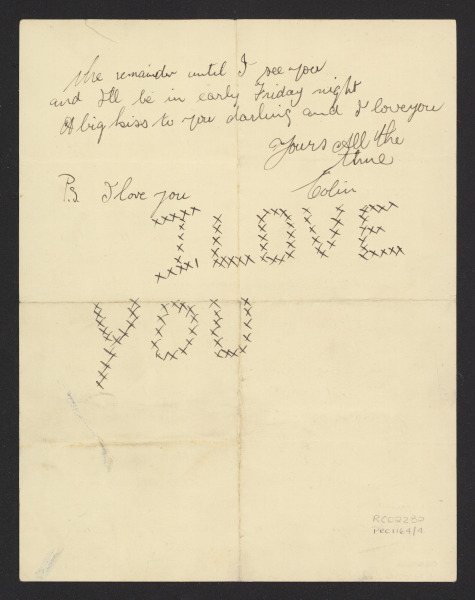 the remainder until I see you
and I'll be in early Friday night
A big kiss to you darling and I love you
Yours All the
time
Colin
P.S I love you
I LOVE
YOU
RC02252
POC1164/9